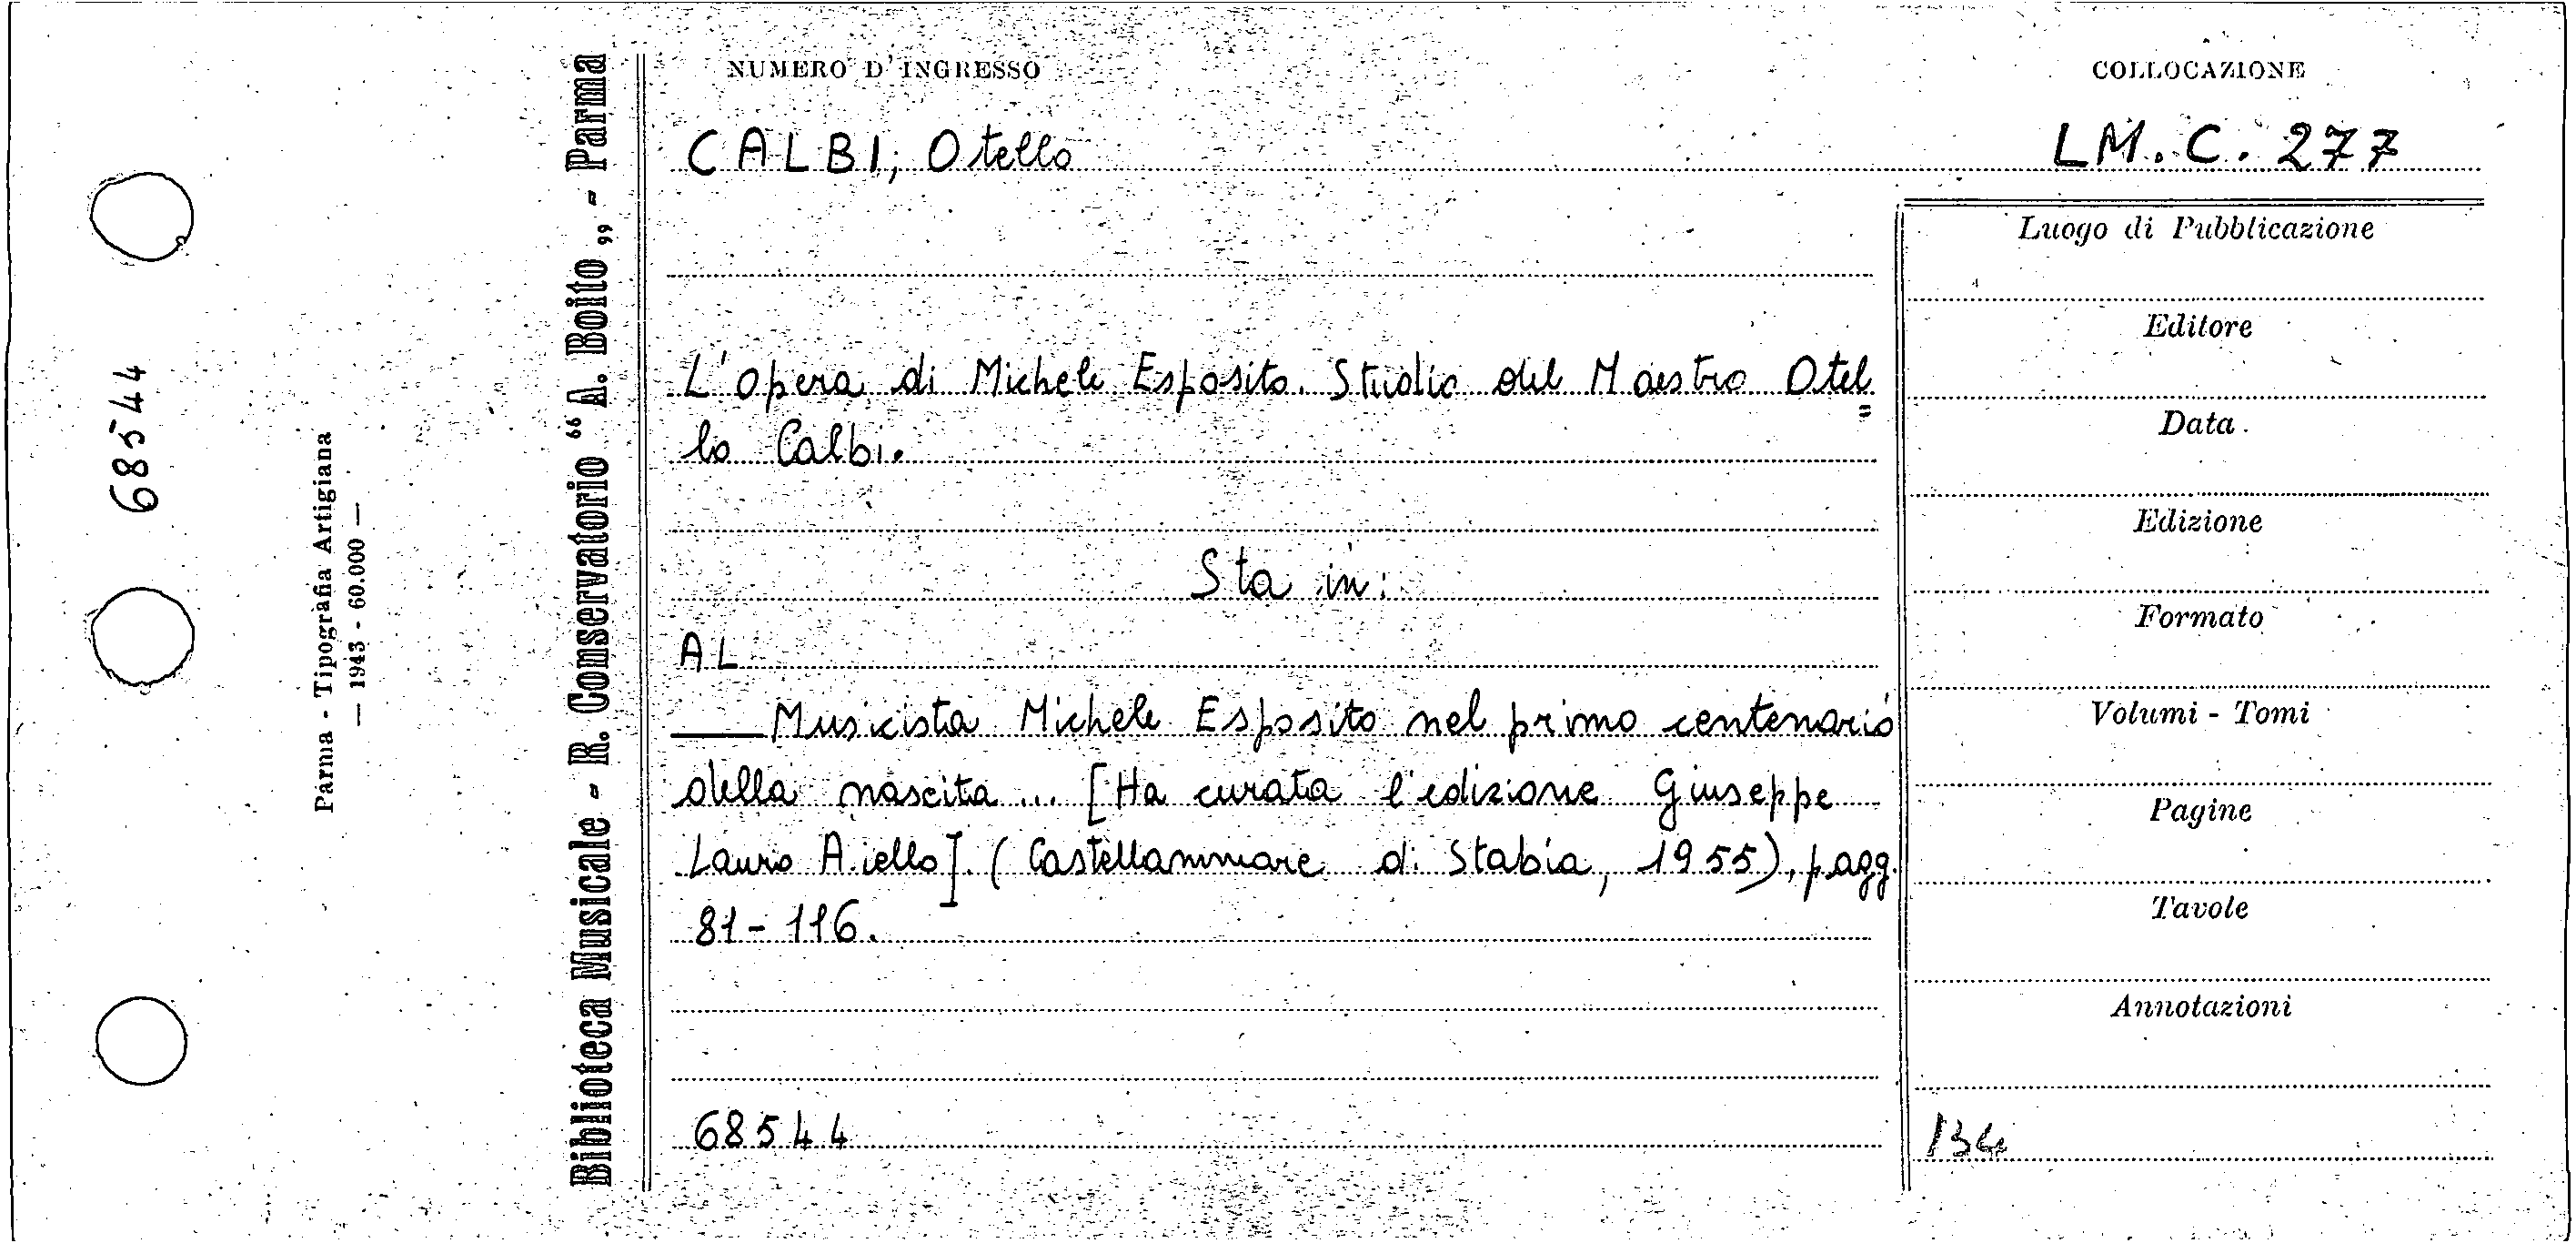 68544
Parma - Tipografia Artigiana
— 1943 - 60.000 —
Biblioteca Musicale - R. Conservatorio “ A. Boito „ - Parma
NUMERO D'INGRESSO
COLLOCAZIONE
CALBI, Otello
LM. C. 277
L'opera di Michele Esposito. Studio del Maestro Otel=
lo Calbi.
Sta in:
AL
____ Musicista Michele Esposito nel primo centenario
della nascita ... [Ha curata l'edizione Giuseppe
Lauro Aiello]. (Castellammare di Stabia, 1955), pagg.
81-116.
68544
Luogo di Pubblicazione
Editore
Data
Edizione
Formato
Volumi - Tomi
Pagine
Tavole
Annotazioni
134